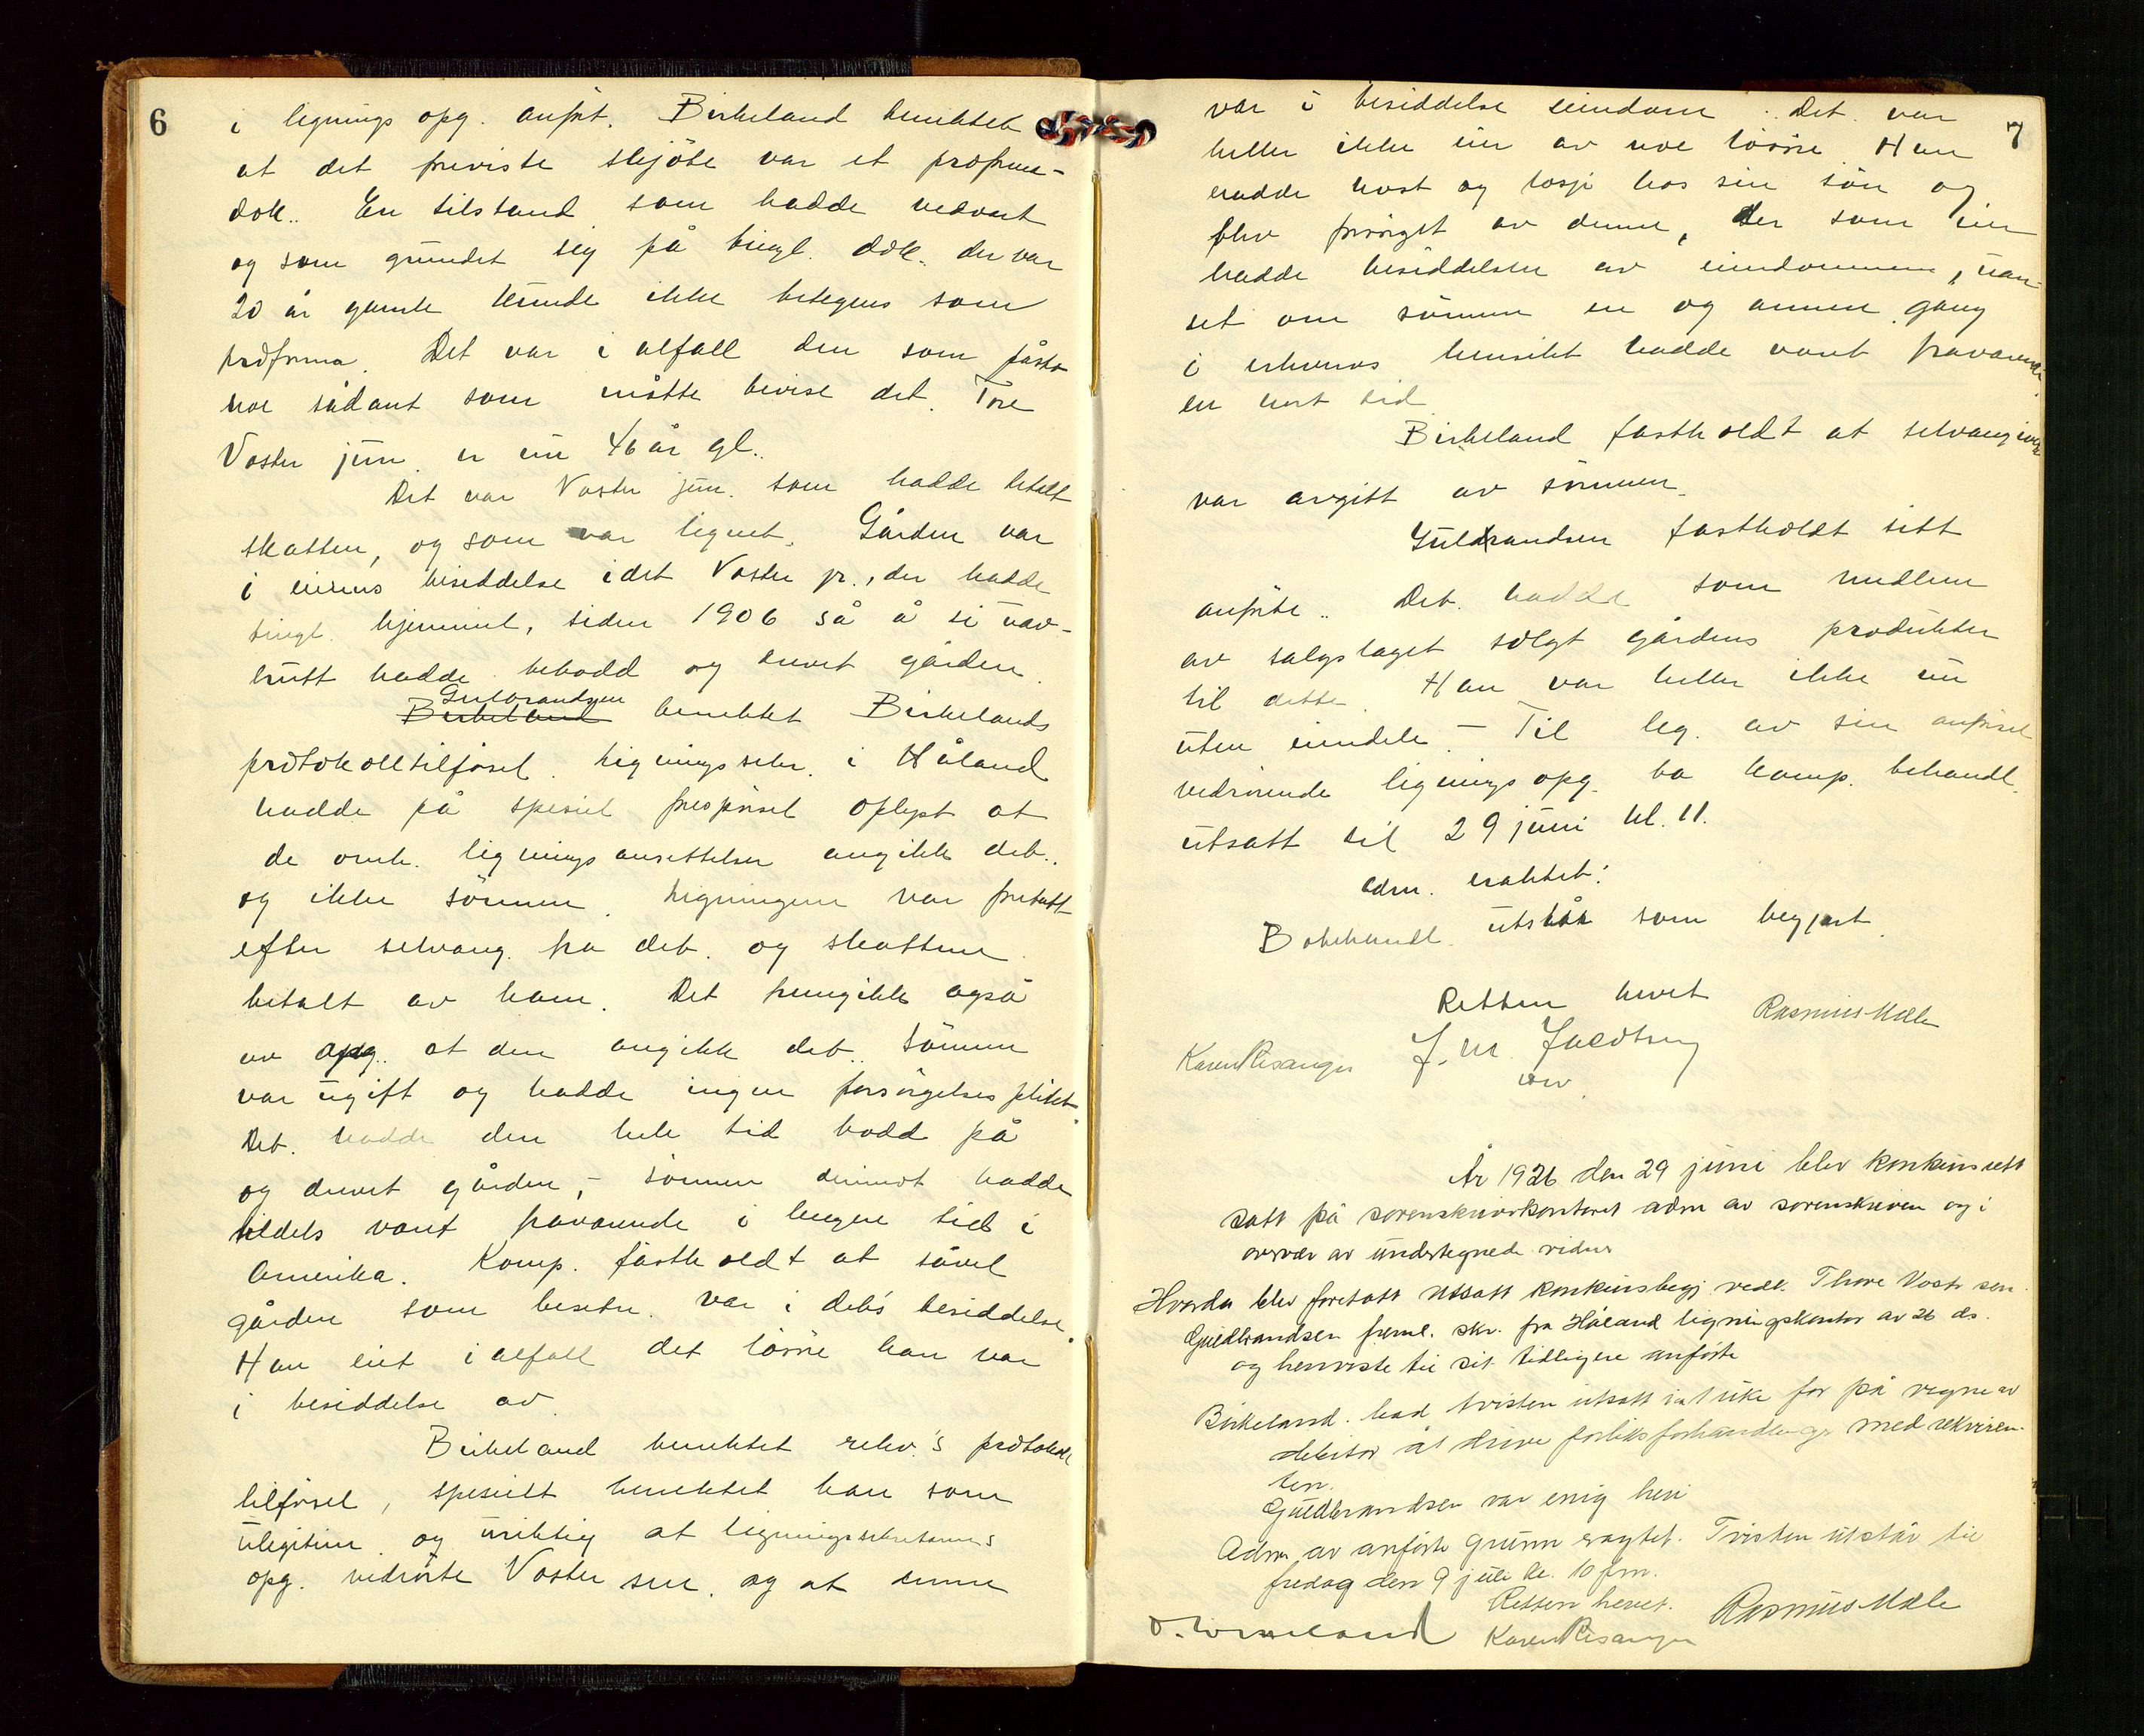 6
i lignings opg. anført. Birkeland benektet
at det freviste skjöte var et proforma-
dok.. En tilstand som hadde vedvart
og som grundet sig på tingl. dok. der var
20 år gamle kunde ikke betegnes som
proforma. Det var i alfall den som påsto
noe sådant som måtte bevise det. Tore
Voster jun. er nu 46 år gl..
Det var Voster jun. som hadde betalt
skatten, og som var lignet. Gården var
i eierens besiddelse idet Voster jr., der hadde
tingl. hjemmel, siden 1906 så å si uav-
brutt hadde bebodd og drevet gården.
Birkeland Gulbrandsen benektet Birkelands
protokolltilførsel. Ligningssekr. i Håland
hadde på spesiel forespørsel oplyst at
de omh. ligningsansettelser angikk deb..
og ikke sönnen. Ligningene var foretatt
efter selvang. fra deb. og skattene
betalt av ham. Det fremgikk også
av opg. at den angikk deb.. Sönnen
var ugift og hadde ingen forsörgelsesplikt.
Deb. hadde den hele tid bodd på
og drevet gården, - sönnen derimot hadde
tildels vært fraværende i lengere tid i
Amerika. Komp. fastholdt at såvel
gården som besetn. var i deb's besiddelse.
Han eiet i alfall det lösöre han var
i besiddelse av.
Birkeland benektet rekv.'s protokoll
tilførsel, spesielt benektet han som
ulegitim. og uriktig at ligningssekretærens
opg. vedrörte Voster sen. og at denne
7
var i besiddelse eiendom. Det. var
heller ikke eier av noe lösöre. Han
hadde kost og losji hos sin sön og
blev forsörget av denne, der som eier
hadde besiddelsen av eiendommen, uan-
set om sönnen en og annen gang
i erhvervs hensikt hadde vært fraværende
en kort tid.
Birkeland fastholdt at selvangivelse
var avgitt av sönnen.
Guldbrandsen fastholdt sitt
anførte.. Deb. hadde som medlem
av salgslaget solgt gårdens produkter
til dette. Han var heller ikke nu
uten eiendele. - Til leg. av sin anførsel
vedrörende ligningsopg. ba komp. behandl.
utsatt til 29 juni kl. 11.
adm. eraktet:
Bobehandl. utstår som begjært.
Retten hevet
Rasmus Mæle
Karen Risanger
År 1926 den 29 juni blev konkursrett
satt på sorenskriverkontoret adm av sorenskriveren og i
overvær av undertegnede vidner
Hvorda blev foretatt utsatt konkursbegj. vedk. Thore Voster sen.
Guldbrandsen freml. skr. fra Håland ligningskontor av 26 ds.
og henviste til sit tidligere anførte
Birkeland bad tvisten utsatt i 1 uke for på vegne av
debitor at drive forliksforhandlinger med rekviren-
ten.
Guldbrandsen var enig heri
Adm. av anførte grunn eragtet. Tvisten utstår til
fredag den 9 juli kl. 10 fm.
Retten hevet.
Rasmus Mæle
Karen Risanger